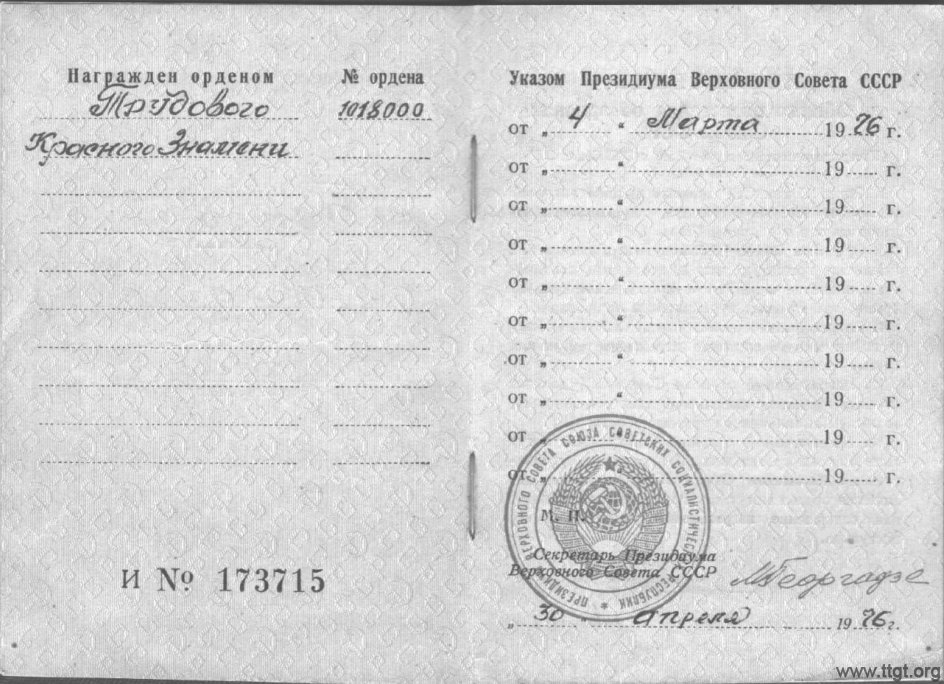 Награжден орденом
№ ордена
Трудового
1018000
Красного Знамени
И № 173715
Указом Президиума Верховного Совета СССР
от „ 4 “ Марта 1976 г.
от „ “ 19 г.
от „ “ 19 г.
от „ “ 19 г.
от „ “ 19 г.
от „ “ 19 г.
от „ “ 19 г.
от „ “ 19 г.
от „ “ 19 г.
от „ “ 19 г.
ПРЕЗИДИУМ ВЕРХОВНОГО СОВЕТА СОЮЗА СОВЕТСКИХ СОЦИАЛИСТИЧЕСКИХ РЕСПУБЛИК
М. П.
Секретарь Президиума
Верховного Совета СССР
МГеоргадзе
„ 30 “ апреля 1976 г.
www.ttgt.org